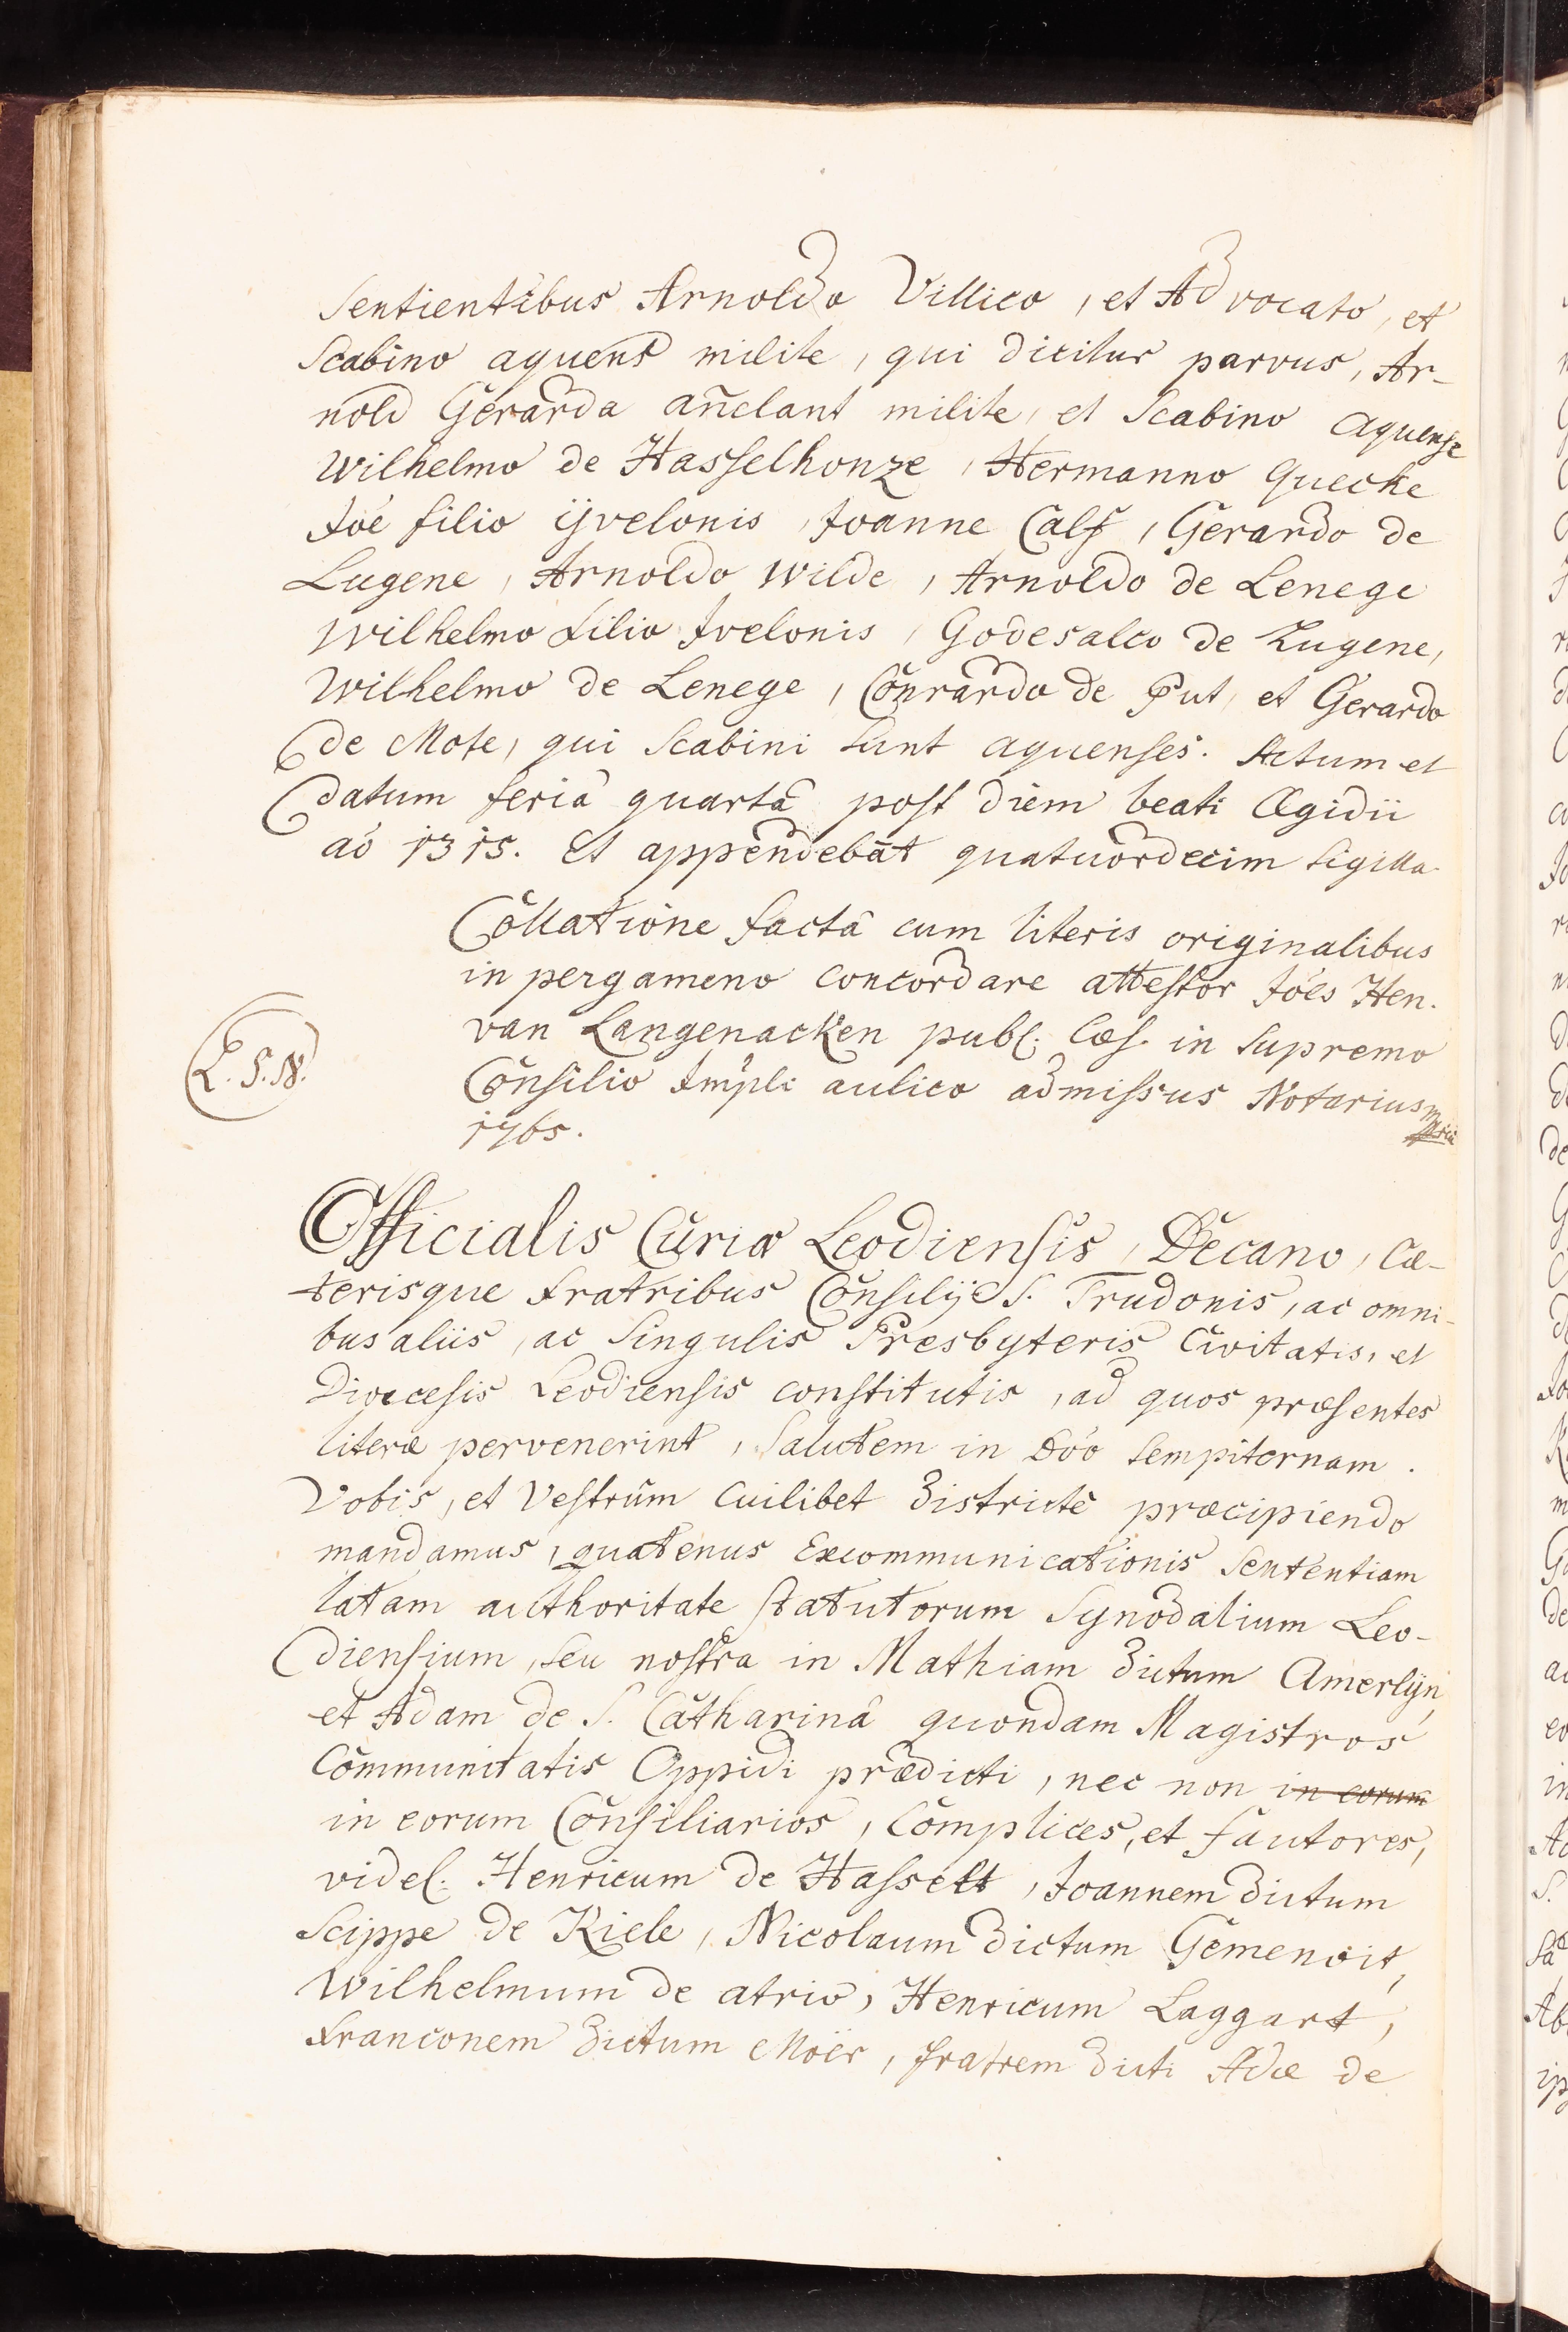 sentientibus Arnoldo Villico, et Advocato, et
Scabino aquens milite, qui dicitur parvus, Ar-
nold Gerarda añclant milite, et Scabino aquense
Wilhelmo de Hasselhonze, Hermanno Quecke
Joé filio ijvelonis, Joanne Calf, Gerardo de
Lugene, Arnoldo Wilde, Arnoldo de Lenege
Wilhelmo filio Ivelonis, Godesalco de Lugene,
Wilhelmo de Lenege, Conrardo de Put, et Gerardo
de Mote, qui Scabini sunt aquenses. Actum et
datum feriâ quartâ post diem beati Ægidii
aó 1315. Et appendebāt quatuordecim sigilla.
Collatione factâ cum literis originalibus
in pergameno concordare attestor Jóes Hen.
van Langenacken publ. Cæs. in supremo
L. S. N.
Consilio Impli aulico admissus Notarius
1765.
Officialis Curiæ Leodiensis, Decano, Cæ-
terisque fratribus Consilij S. Trudonis, ac omni-
bus aliis, ac singulis Presbyteris Civitatis, et
Diœcesis Leodiensis constitutis, ad quos præsentes
literæ pervenerint, Salutem in Dóo sempiternam.
Vobis, et Vestrûm cuilibet districtè præcipiendo
mandamus, quatenus Excommunicationis Sententiam
latam authoritate statutorum Synodalium Leo-
diensium, seu nostra in Mathiam dictum Amerlijn,
et Adam de S. Catharinâ quondam Magistros
Communitatis Oppidi prædicti, nec non in eorum
in eorum Consiliarios, Complices, et fautores,
videl. Henricum de Hasselt, Joannem dictum
Scippe de Kiele, Nicolaum dictum Gemenoit,
Wilhelmum de atrio, Henricum Laggart,
Franconem dictum Moër, fratrem dicti Adæ de